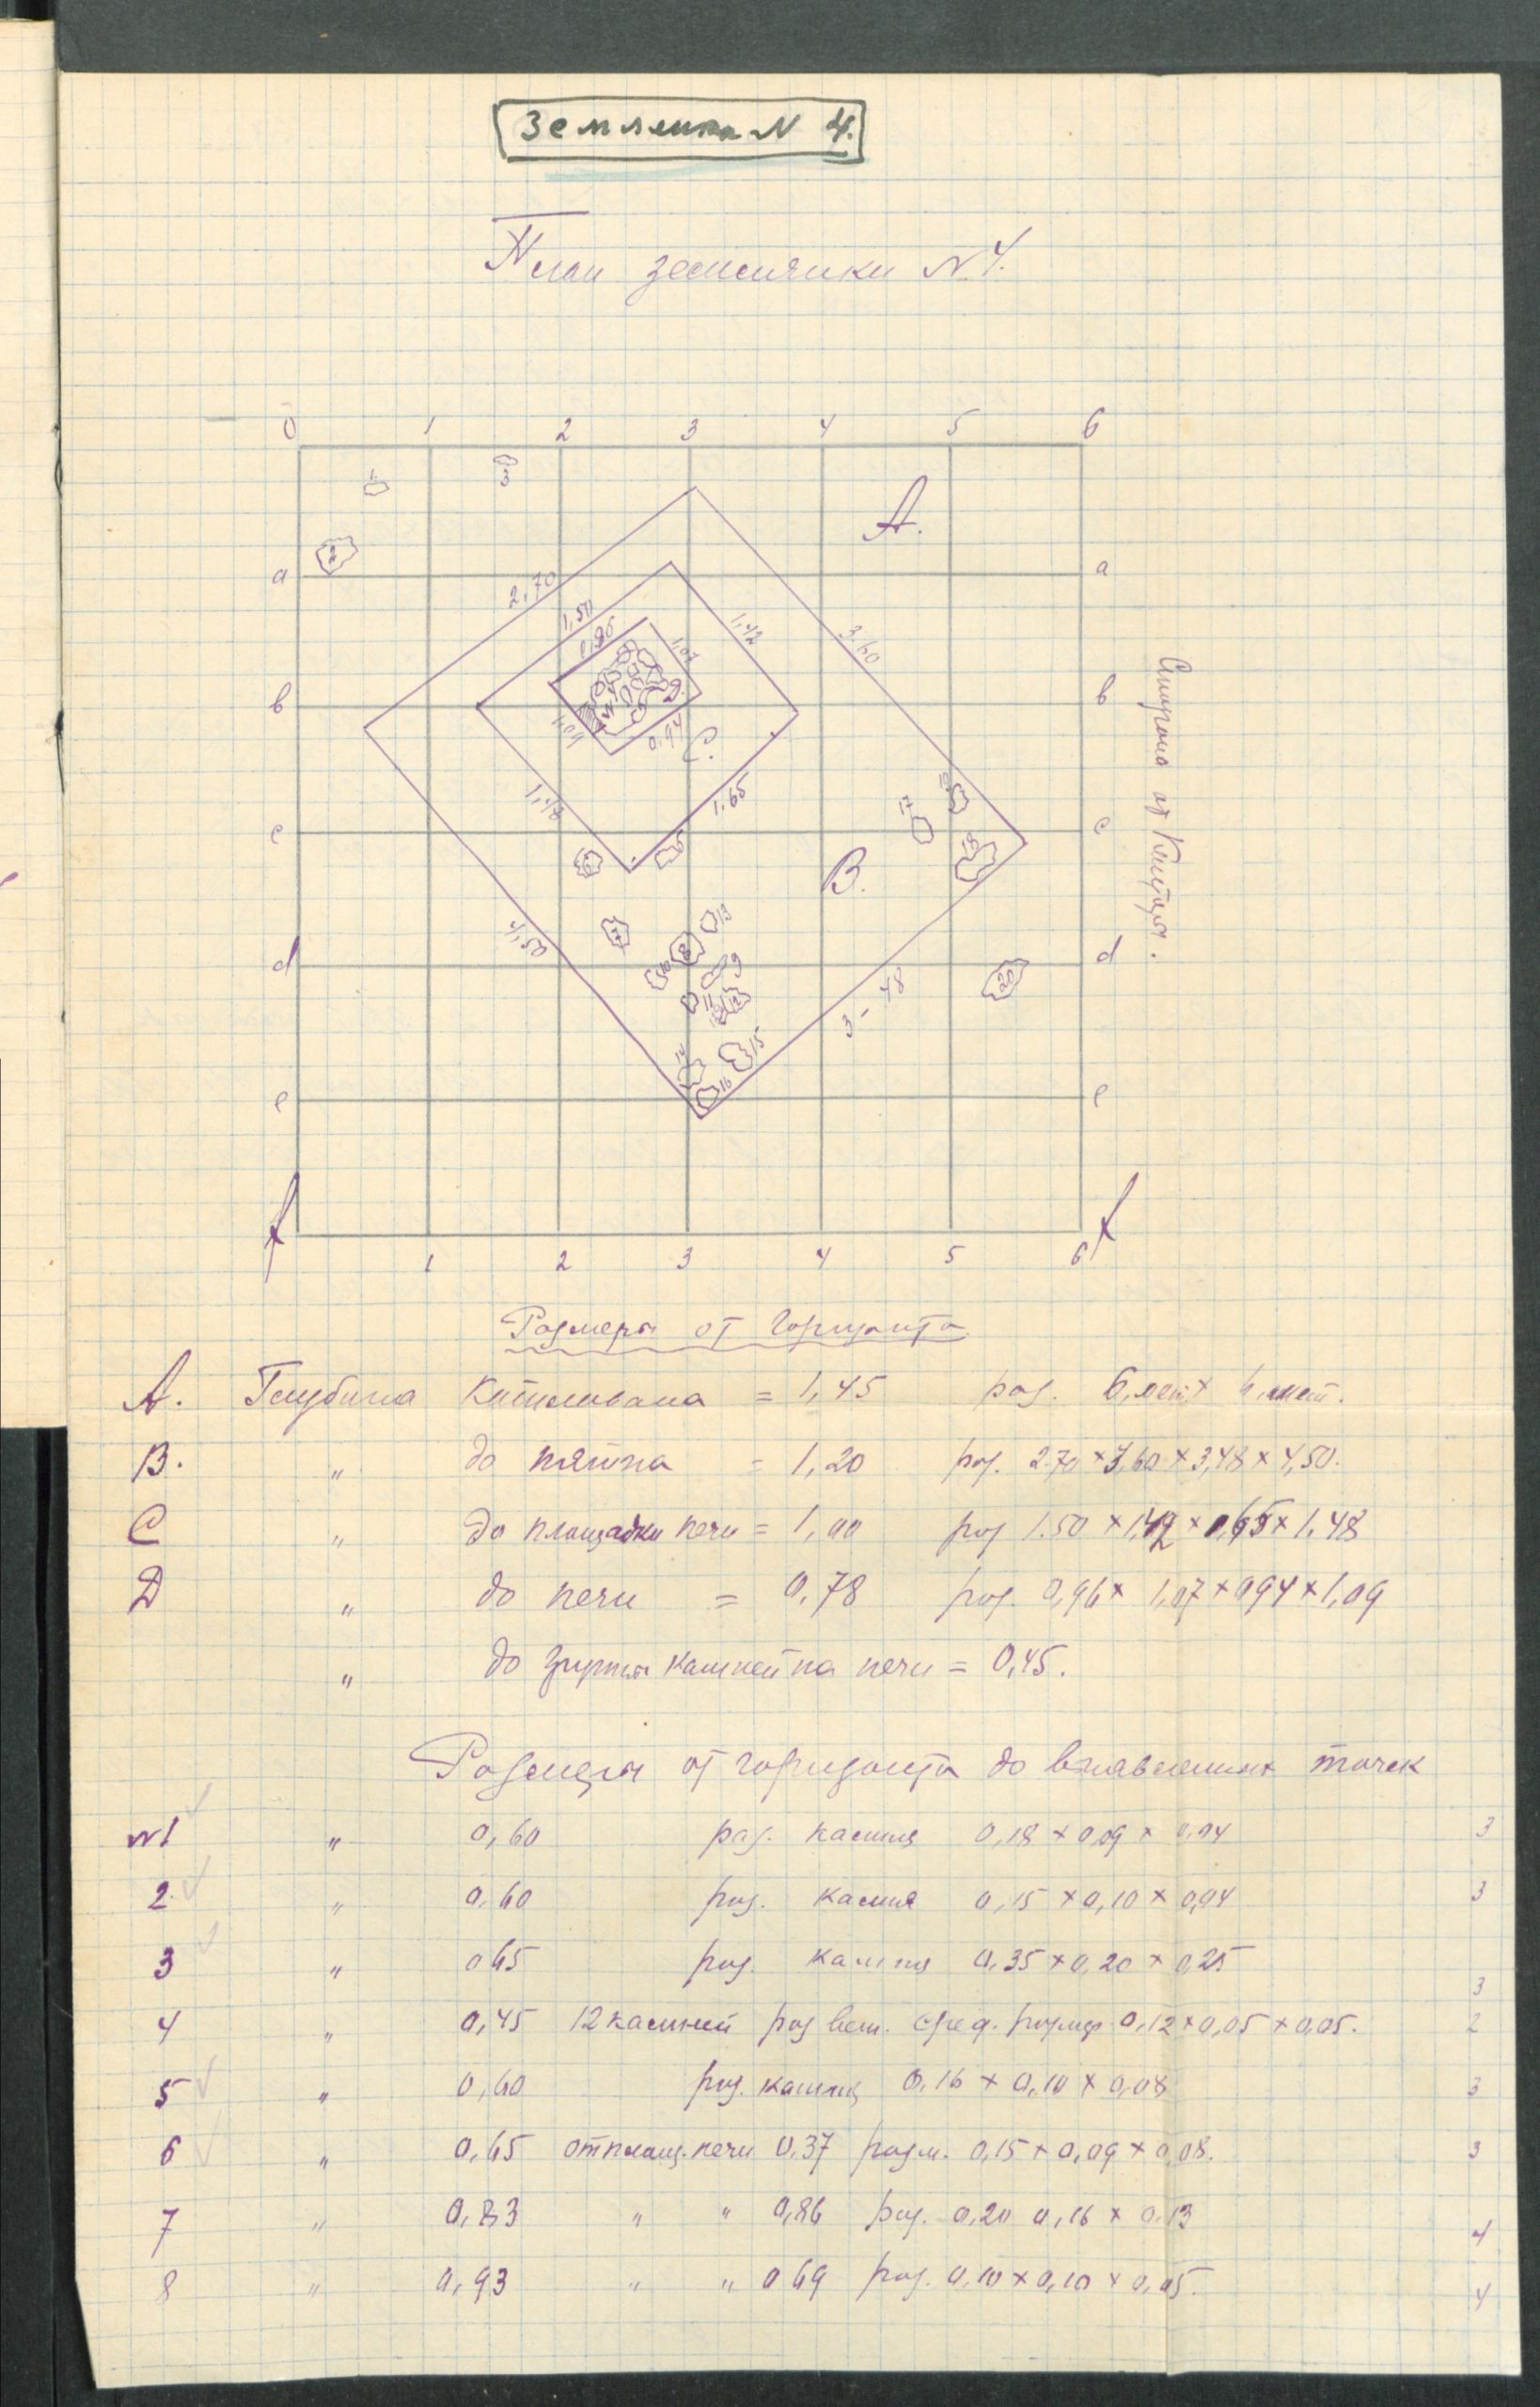 Землянка N 4.
План землянки N 4.
0 1 2 3 4 5 6
1 3 A.
2
a a
2,70
1,50
0,96 1,07 1,42 3.60
b b
1,09 0,94 C.
Сторона от
1,48 1,65
17
c c
18
6 5 B.
7 13
4,50 8
d d
10 9 20
11 12 3-48
14 15
16
e e
f f
1 2 3 4 5 6
Размеры от горизонта
A. Глубина Котлована = 1,45 раз. 6 мет x 6 мет.
B. " до пятна = 1,20 раз. 2.70 x 3,60 x 3,48 x 4,50.
C " до площадки печи = 1,00 раз 1.50 x 1,42 x 1,65 x 1,48
D " до печи = 0,78 раз. 0,96 x 1,07 x 0,94 x 1,09
" до камней на печи = 0,45.
Размеры от горизонта до точек
N1 " 0,60 раз. камня 0,18 x 0,09 x 0,04 3
2. " 0,60 раз. камня 0,15 x 0,10 x 0,04 3
3 " 0 65 раз. камня 0,35 x 0,20 x 0,25 3
4 " 0,45 12 камней раз вел. сред. размер. 0,12 x 0,05 x 0,05. 2
5 " 0,60 раз. камня 0,16 x 0,10 x 0,08 3
6 " 0,65 от площ. печи 0.37 разм. 0,15 x 0,09 x 0,08. 3
7 " 0,83 " " 0,86 раз. 0,20 0,16 x 0,13 4
8 " 0,93 " " 0 69 раз. 0,10 x 0,10 x 0,05. 4